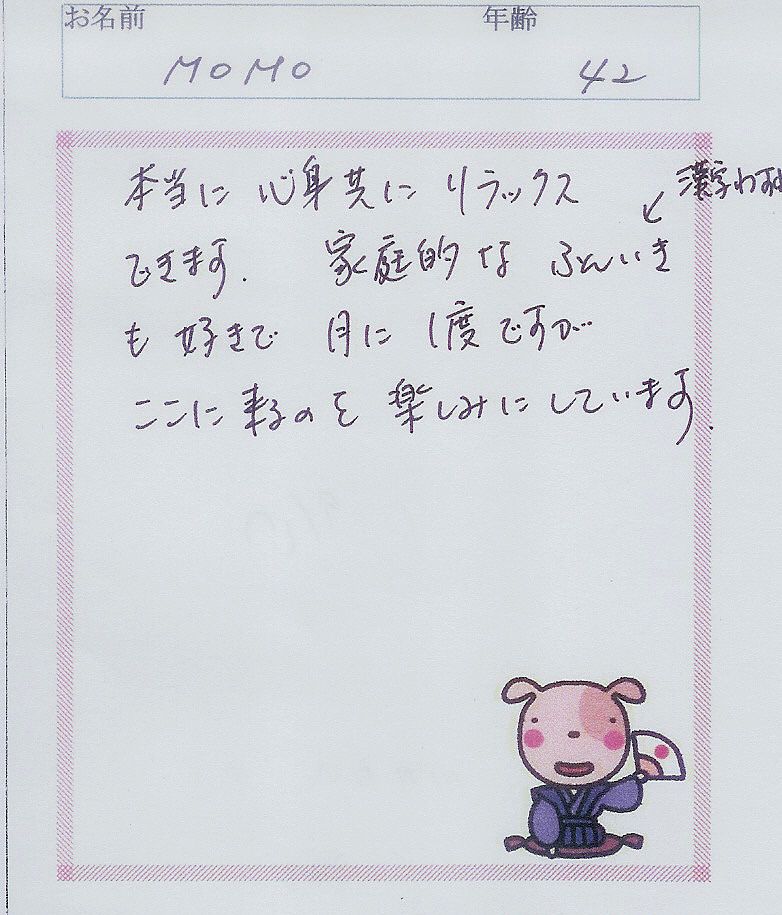 お名前 年齢
MOMO 42
本当に 心身共に リラックス
漢字わすれ
できます. 家庭的な ふんいき
も 好きで 月に 1度ですが
ここに来るのを 楽しみにしています.